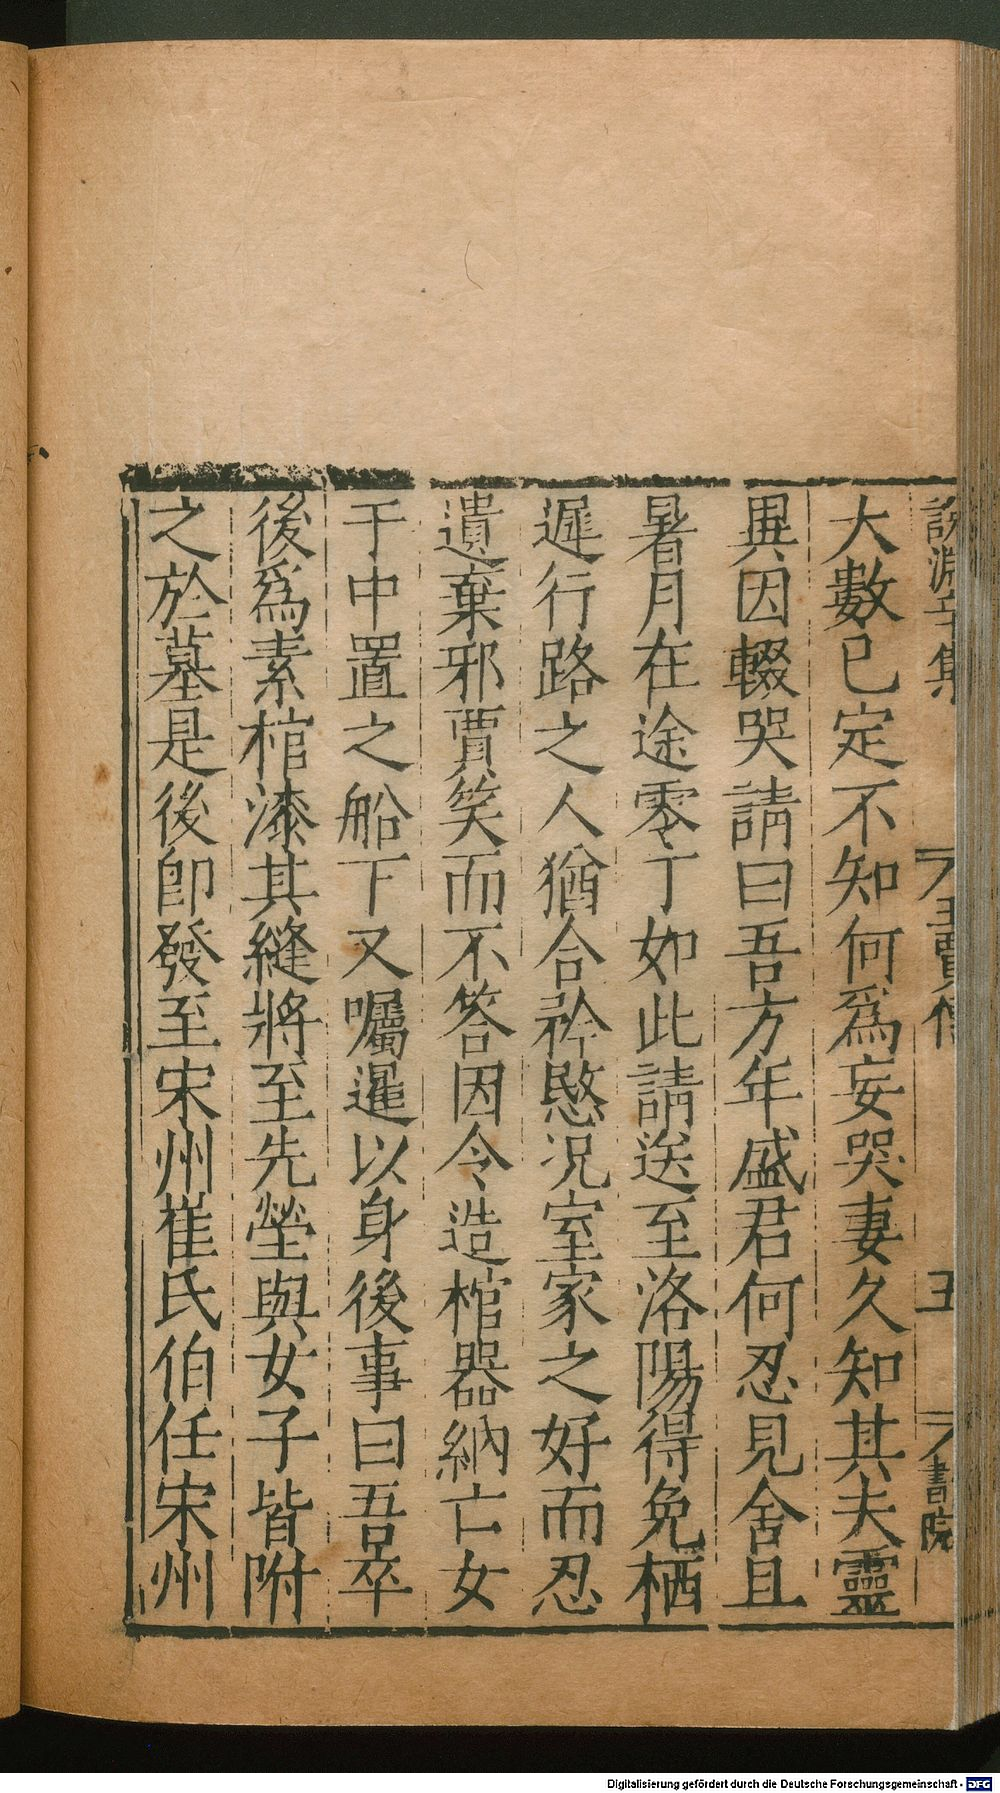 說淵辛集
王賈傳
五
書院
大數已定不知何為妄哭妻久知其夫靈
異因輟哭請曰吾方年盛君何忍見舍且
暑月在途零丁如此請送至洛陽得免栖
遲行路之人猶合矜愍况室家之好而忍
遺棄邪賈笑而不答因令造棺器納亡女
于中置之船下又囑暹以身後事曰吾卒
後爲素棺漆其縫將至先塋與女子皆附
之於墓是後卽發至宋州崔氏伯任宋州
Digitalisierung gefördert durch die Deutsche Forschungsgemeinschaft - DFG